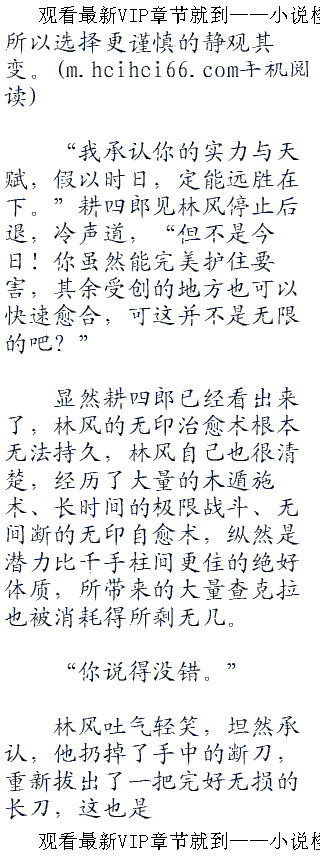 观看最新VIP章节就到——小说检
所以选择更谨慎的静观其
变。(m.hcihci66.com手机阅
读)
“我承认你的实力与天
赋，假以时日，定能远胜在
下。”耕四郎见林风停止后
退，冷声道，“但不是今
日！你虽然能完美护住要
害，其余受创的地方也可以
快速愈合，可这并不是无限
的吧？”
显然耕四郎已经看出来
了，林风的无印治愈术根本
无法持久，林风自己也很清
楚，经历了大量的木遁施
术、长时间的极限战斗、无
间断的无印自愈术，纵然是
潜力比千手柱间更佳的绝好
体质，所带来的大量查克拉
也被消耗得所剩无几。
“你说得没错。”
林风吐气轻笑，坦然承
认，他扔掉了手中的断刀，
重新拔出了一把完好无损的
长刀，这也是
观看最新VIP章节就到——小说检